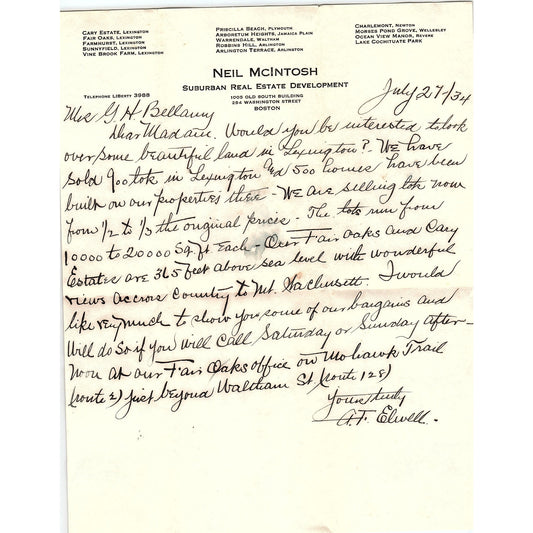 CARY ESTATE, LEXINGTON
FAIR OAKS, LEXINGTON
FARMHURST, LEXINGTON
SUNNYFIELD, LEXINGTON
VINE BROOK FARM, LEXINGTON
PRISCILLA BEACH, PLYMOUTH
ARBORETUM HEIGHTS, JAMAICA PLAIN
WARRENDALE, WALTHAM
ROBBINS HILL, ARLINGTON
ARLINGTON TERRACE, ARLINGTON
CHARLEMONT, NEWTON
MORSES POND GROVE, WELLESLEY
OCEAN VIEW MANOR, REVERE
LAKE COCHITUATE PARK
NEIL MCINTOSH
SUBURBAN REAL ESTATE DEVELOPMENT
TELEPHONE LIBERTY 3988
1003 OLD SOUTH BUILDING
294 WASHINGTON STREET
BOSTON
July 27-/34
G H Bellamy
Dear Madam. Would you be interested to look
over some beautiful land in Lexington? We have
sold 900 lots in Lexington and 500 homes have been
built on our properties there - We are selling lots now
from 1/2 to 1/3 the original prices - The lots run from
10000 to 20000 Sq. ft. Each - Our Fair Oaks and Cary
Estates are 365 feet above sea level with wonderful
views accross Country to Mt. Wachusett. I would
like very much to show you some of our bargains and
will do so if you will call Saturday or Sunday after-
noon at our Fair Oaks office on Mohawk Trail
(route 2) just beyond Waltham St (route 128)
Yours truly
A. F. Elwell.